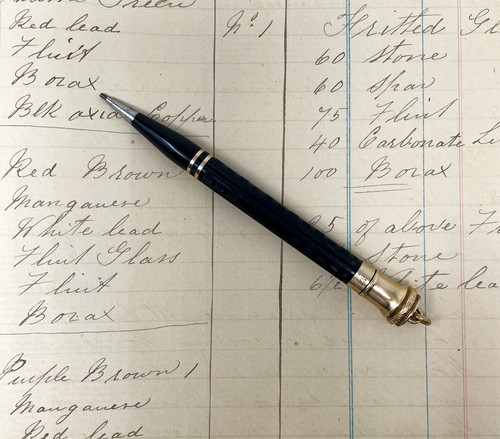 Green
Red lead
Flint
Borax
Blk oxid Copper
Red Brown
Manganese
White lead
Flint Glass
Flint
Borax
Purple Brown 1
Manganese
Red lead
No 1 Fritted
60 stone
60 spar
75 Flint
40 Carbonate
100 Borax
of above
Stone
lea